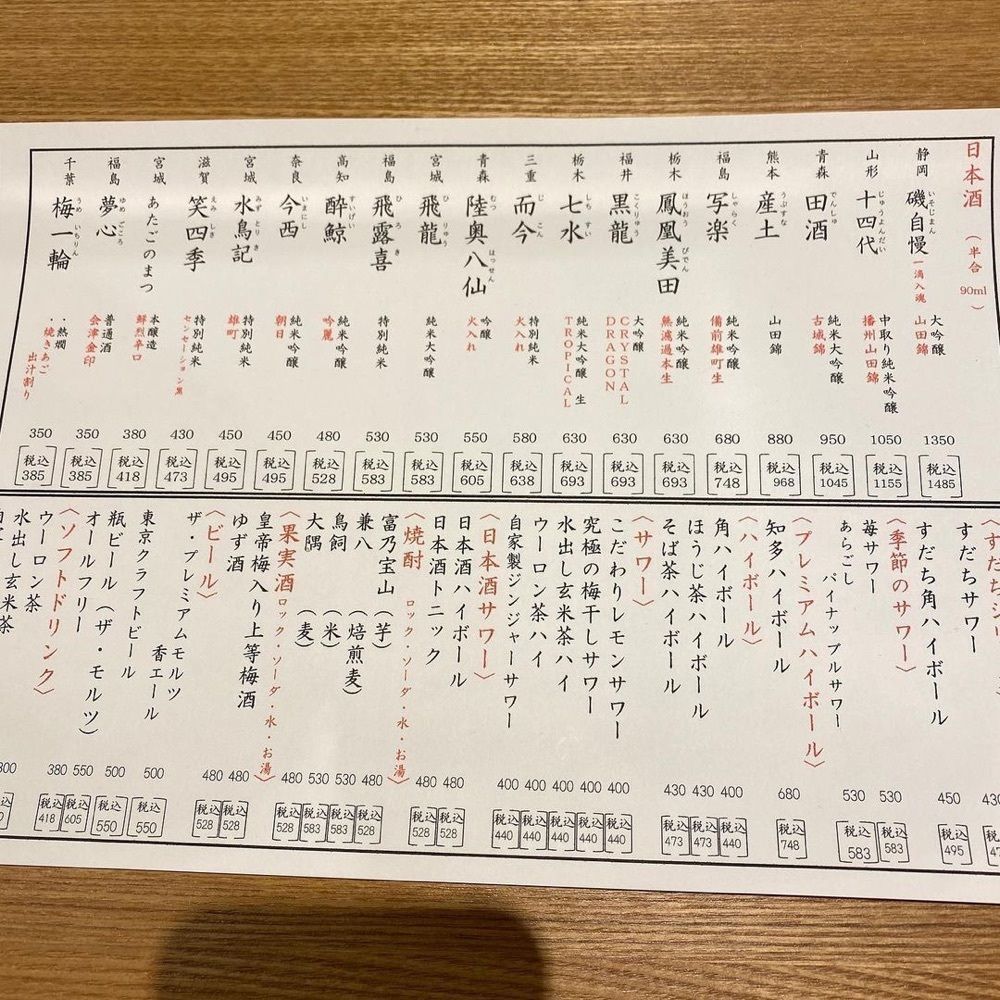 日本酒 （半合 90ml）
静岡 磯自慢 いそじまん 一滴入魂 大吟醸 山田錦 1350 税込 1485
山形 十四代 じゅうよんだい 中取り純米吟醸 播州山田錦 1050 税込 1155
青森 田酒 でんしゅ 純米大吟醸 古城錦 950 税込 1045
熊本 産土 うぶすな 山田錦 880 税込 968
福島 写楽 しゃらく 純米吟醸 備前雄町生 680 税込 748
栃木 鳳凰美田 ほうおうびでん 純米吟醸 無濾過本生 630 税込 693
福井 黒龍 こくりゅう 大吟醸 CRYSTAL DRAGON 630 税込 693
栃木 七水 しちすい 純米大吟醸 生 TROPICAL 630 税込 693
三重 而今 じこん 特別純米 火入れ 580 税込 638
青森 陸奥八仙 むつはっせん 吟醸 火入れ 550 税込 605
宮城 飛龍 ひりゅう 純米大吟醸 530 税込 583
福島 飛露喜 ひろき 特別純米 530 税込 583
高知 酔鯨 すいげい 純米吟醸 吟麗 480 税込 528
奈良 今西 いまにし 純米吟醸 朝日 450 税込 495
宮城 水鳥記 みずとりき 特別純米 雄町 450 税込 495
滋賀 笑四季 えみしき 特別純米 センセーション黒 430 税込 473
宮城 あたごのまつ 本醸造 鮮烈辛口 380 税込 418
福島 夢心 ゆめごころ 普通酒 会津金印 350 税込 385
千葉 梅一輪 うめいちりん ・熱燗 ・焼きあご出汁割り 350 税込 385
〈すだち
すだちサワー 430
すだち角ハイボール 450 税込 495
〈季節のサワー〉
苺サワー 530 税込 583
あらごし パイナップルサワー 530 税込 583
〈プレミアムハイボール〉
知多ハイボール 680 税込 748
〈ハイボール〉
角ハイボール 400 税込 440
ほうじ茶ハイボール 430 税込 473
そば茶ハイボール 430 税込 473
〈サワー〉
こだわりレモンサワー 400 税込 440
究極の梅干しサワー 400 税込 440
水出し玄米茶ハイ 400 税込 440
ウーロン茶ハイ 400 税込 440
自家製ジンジャーサワー 400 税込 440
〈日本酒サワー〉
日本酒ハイボール 480 税込 528
日本酒トニック 480 税込 528
〈焼酎 ロック・ソーダ・水・お湯〉
富乃宝山（芋） 480 税込 528
兼八（焙煎麦） 530 税込 583
鳥飼（米） 530 税込 583
大隅（麦） 480 税込 528
〈果実酒 ロック・ソーダ・水・お湯〉
皇帝梅入り上等梅酒 480 税込 528
ゆず酒 480 税込 528
〈ビール〉
ザ・プレミアムモルツ 香エール 500 税込 550
東京クラフトビール 500 税込 550
瓶ビール（ザ・モルツ） 550 税込 605
オールフリー 380 税込 418
〈ソフトドリンク〉
ウーロン茶
水出し玄米茶